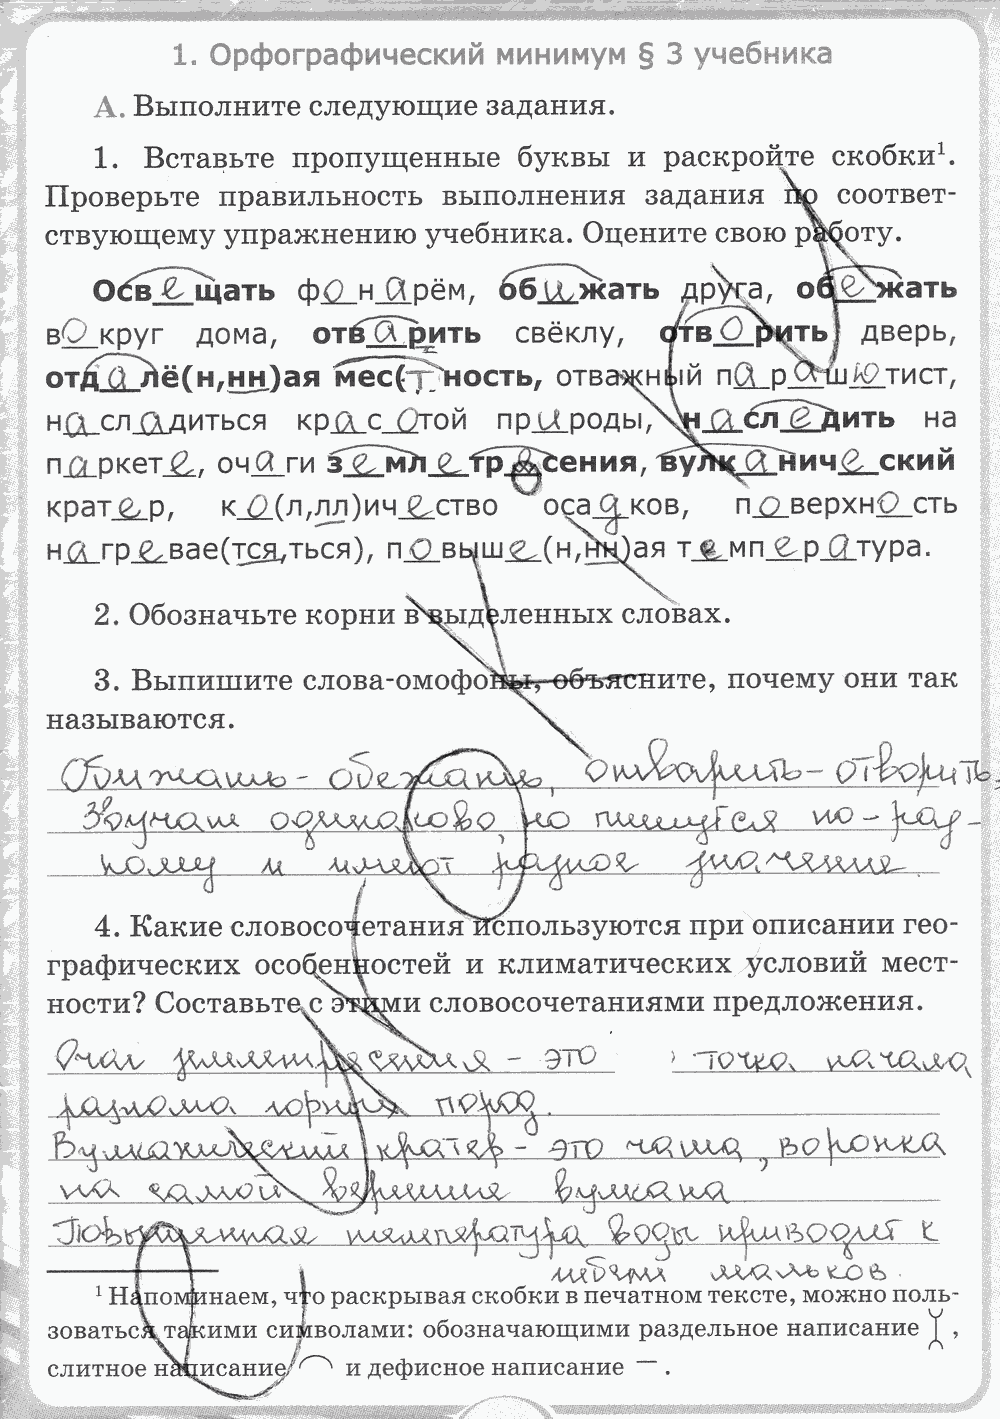 1. Орфографический минимум § 3 учебника
А. Выполните следующие задания.
1. Вставьте пропущенные буквы и раскройте скобки¹.
Проверьте правильность выполнения задания по соответ-
ствующему упражнению учебника. Оцените свою работу.
Освещать фонарём, обижать друга, обежать
вокруг дома, отварить свёклу, отворить дверь,
отдалё(н,нн)ая мес(т ность, отважный парашютист,
насладиться красотой природы, наследить на
паркете, очаги землетрясения, вулканический
кратер, ко(л,лл)ичество осадков, поверхность
нагревае(тся,ться), повыше(н,нн)ая температура.
2. Обозначьте корни в выделенных словах.
3. Выпишите слова-омофоны, объясните, почему они так
называются.
Обижать - обежать, отварить - отворить,
Звучат одинаково, но пишутся по-раз-
ному и имеют разное значение.
4. Какие словосочетания используются при описании гео-
графических особенностей и климатических условий мест-
ности? Составьте с этими словосочетаниями предложения.
Очаг землетресения - это точка начала
разлома горных пород.
Вулканический кратер - это чаша, воронка
на самой вершине вулкана
Повышенная температура воды приводит к
гибели мальков.
¹ Напоминаем, что раскрывая скобки в печатном тексте, можно поль-
зоваться такими символами: обозначающими раздельное написание ,
слитное написание и дефисное написание — .